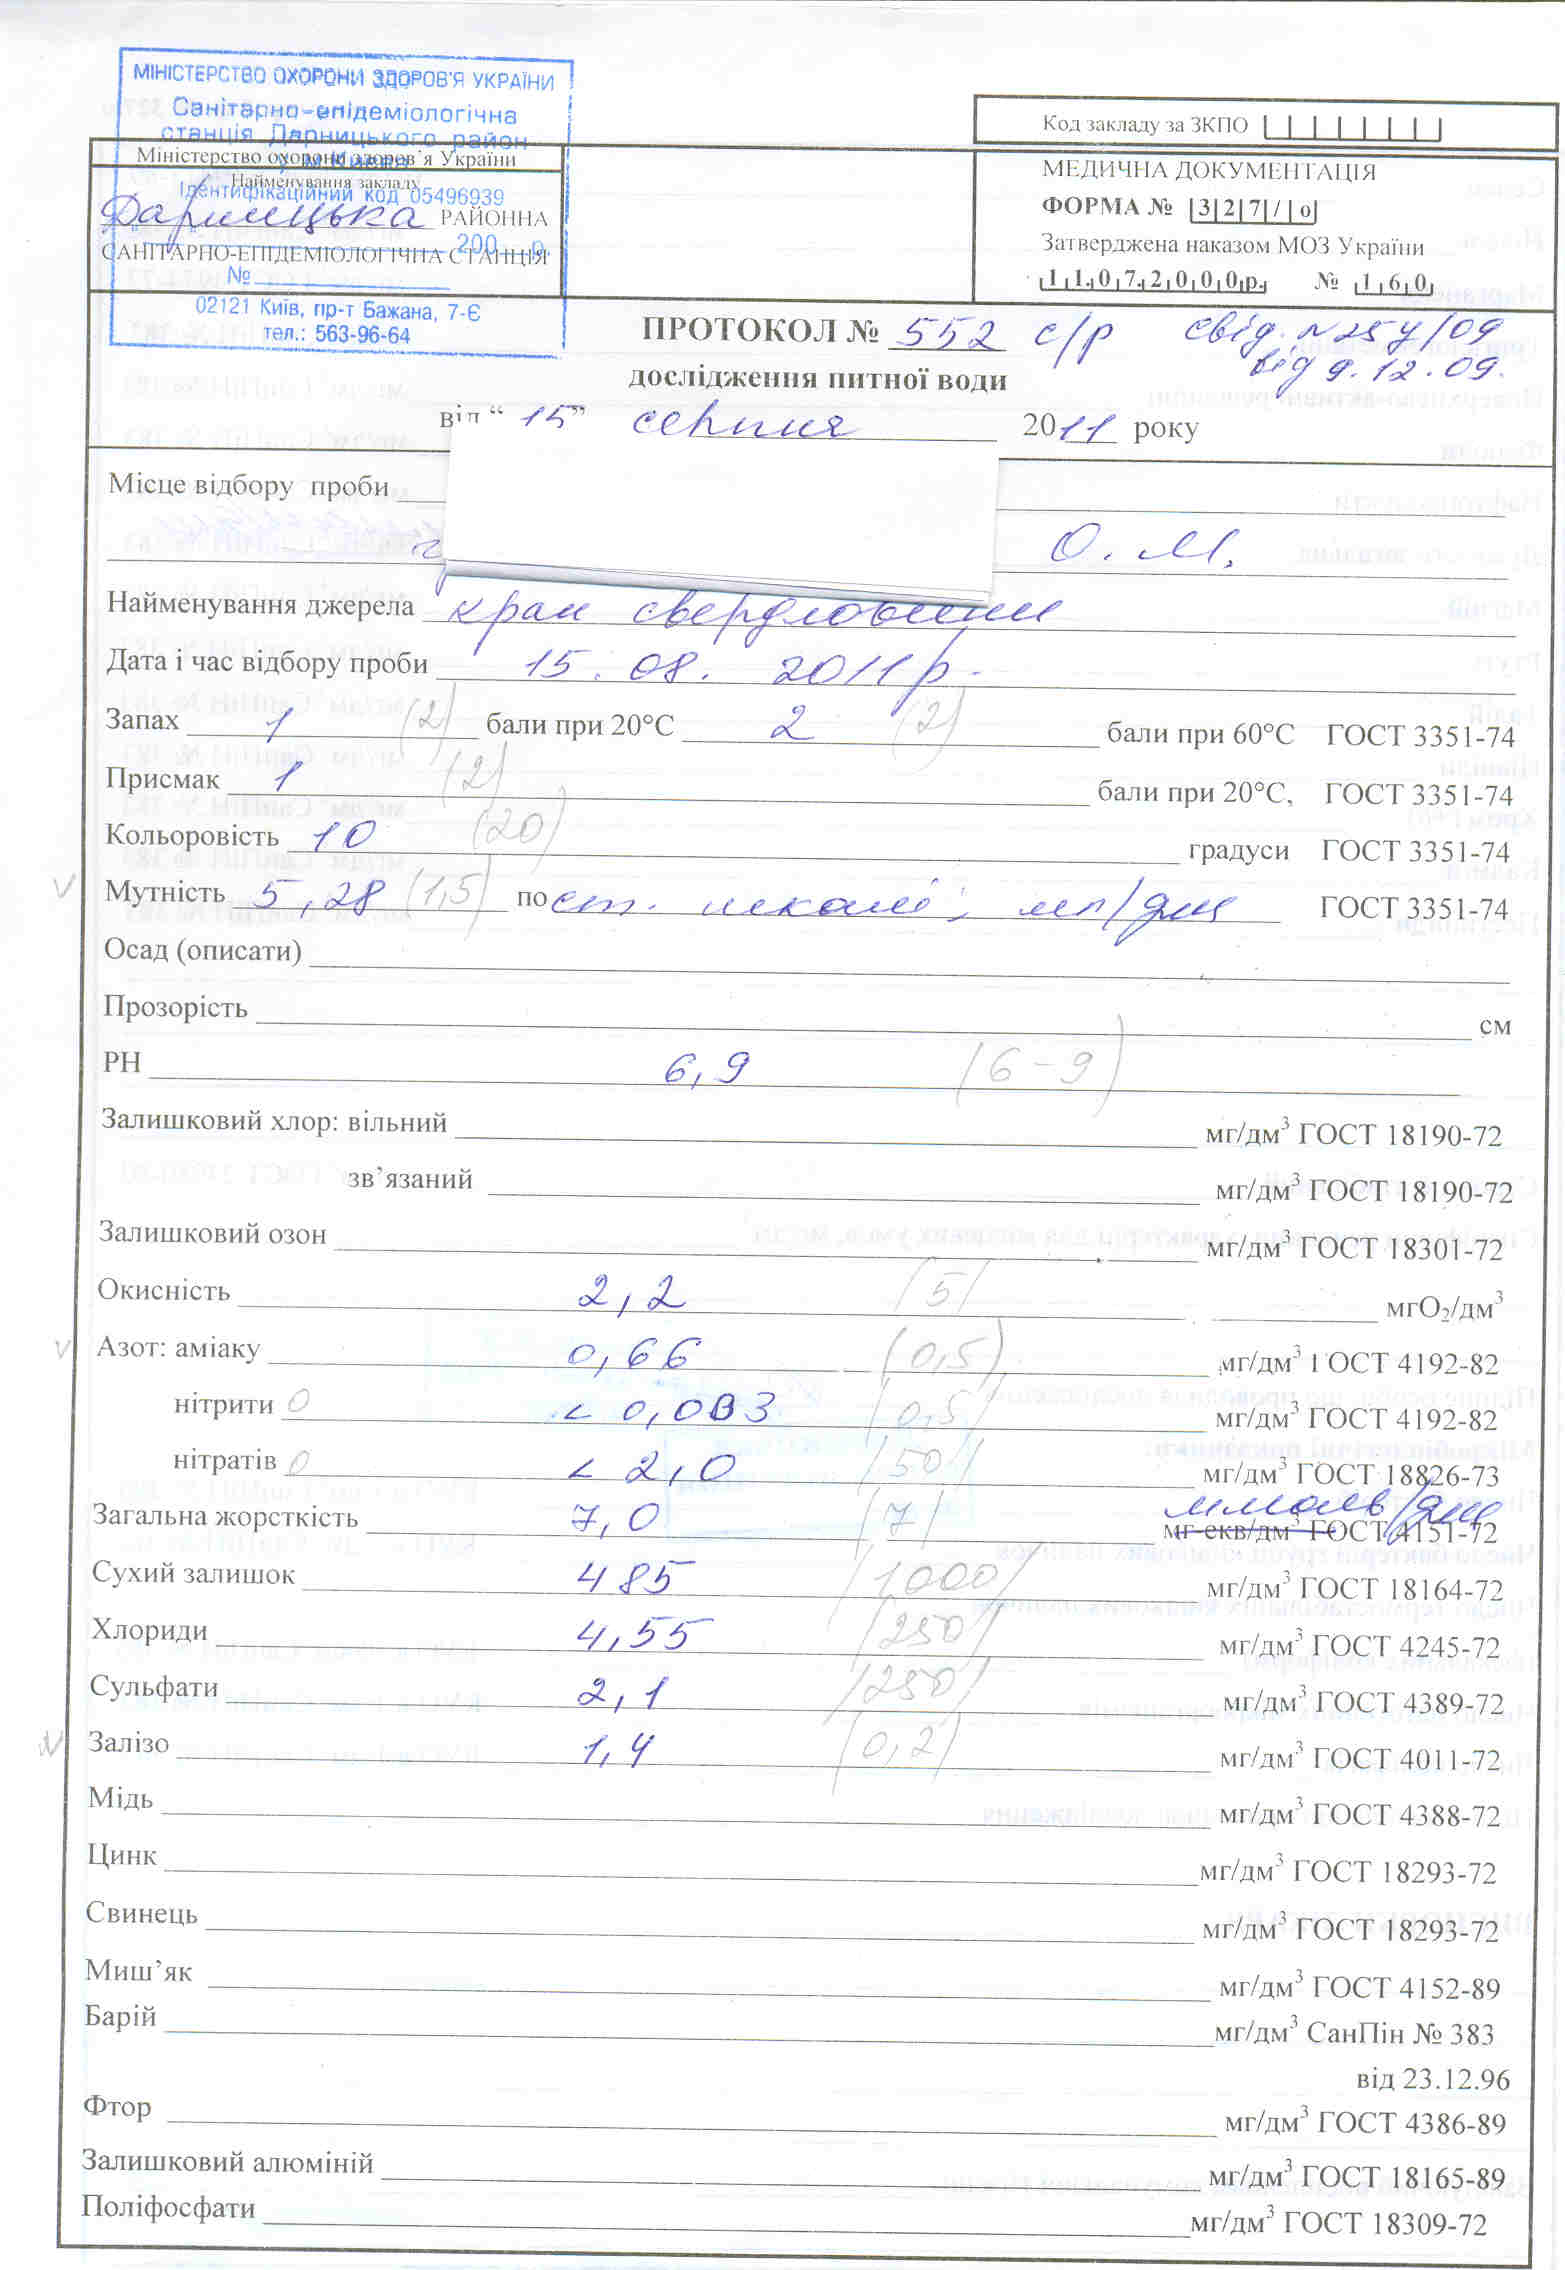 МІНІСТЕРСТВО ОХОРОНИ ЗДОРОВ'Я УКРАЇНИ
Санітарно-епідеміологічна
станція Дарницького район
м.Києва
Ідентифікаційний код 05496939
200 р.
№
02121 Київ, пр-т Бажана, 7-Є
тел.: 563-96-64
Міністерство охорони здоров'я України
Найменування закладу
Дарницька РАЙОННА
САНІТАРНО-ЕПІДЕМІОЛОГІЧНА СТАНЦІЯ
Код закладу за ЗКПО
МЕДИЧНА ДОКУМЕНТАЦІЯ
ФОРМА № 327/о
Затверджена наказом МОЗ України
11.07.2000р. № 160
ПРОТОКОЛ № 552 с/р свід. №254/09
дослідження питної води від 9.12.09.
від “ 15” серпня 2011 року
Місце відбору проби
О. М.
Найменування джерела кран свердловини
Дата і час відбору проби 15.08. 2011р.
Запах 1 (2) бали при 20°С 2 (2) бали при 60°С ГОСТ 3351-74
Присмак 1 (2) бали при 20°С, ГОСТ 3351-74
Кольоровість 10 (20) градуси ГОСТ 3351-74
Мутність 5,28 (1,5) по ст. шкалі, мг/дм ГОСТ 3351-74
Осад (описати)
Прозорість см
РН 6,9 (6-9)
Залишковий хлор: вільний мг/дм³ ГОСТ 18190-72
зв’язаний мг/дм³ ГОСТ 18190-72
Залишковий озон мг/дм³ ГОСТ 18301-72
Окисність 2,2 (5) мгО₂/дм³
Азот: аміаку 0,66 (0,5) мг/дм³ ГОСТ 4192-82
нітрити 0 < 0,003 (0,5) мг/дм³ ГОСТ 4192-82
нітратів 0 < 2,0 (50) мг/дм³ ГОСТ 18826-73
ммоль/дм
Загальна жорсткість 7,0 (7) мг-екв/дм³ ГОСТ 4151-72
Сухий залишок 485 (1000) мг/дм³ ГОСТ 18164-72
Хлориди 4,55 (250) мг/дм³ ГОСТ 4245-72
Сульфати 2,1 (250) мг/дм³ ГОСТ 4389-72
Залізо 1,4 (0,2) мг/дм³ ГОСТ 4011-72
Мідь мг/дм³ ГОСТ 4388-72
Цинк мг/дм³ ГОСТ 18293-72
Свинець мг/дм³ ГОСТ 18293-72
Миш’як мг/дм³ ГОСТ 4152-89
Барій мг/дм³ СанПін № 383
від 23.12.96
Фтор мг/дм³ ГОСТ 4386-89
Залишковий алюміній мг/дм³ ГОСТ 18165-89
Поліфосфати мг/дм³ ГОСТ 18309-72